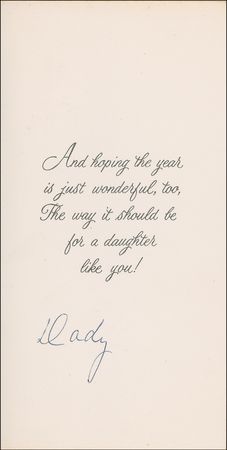 And hoping the year
is just wonderful, too,
The way it should be
for a daughter
like you!
Dady